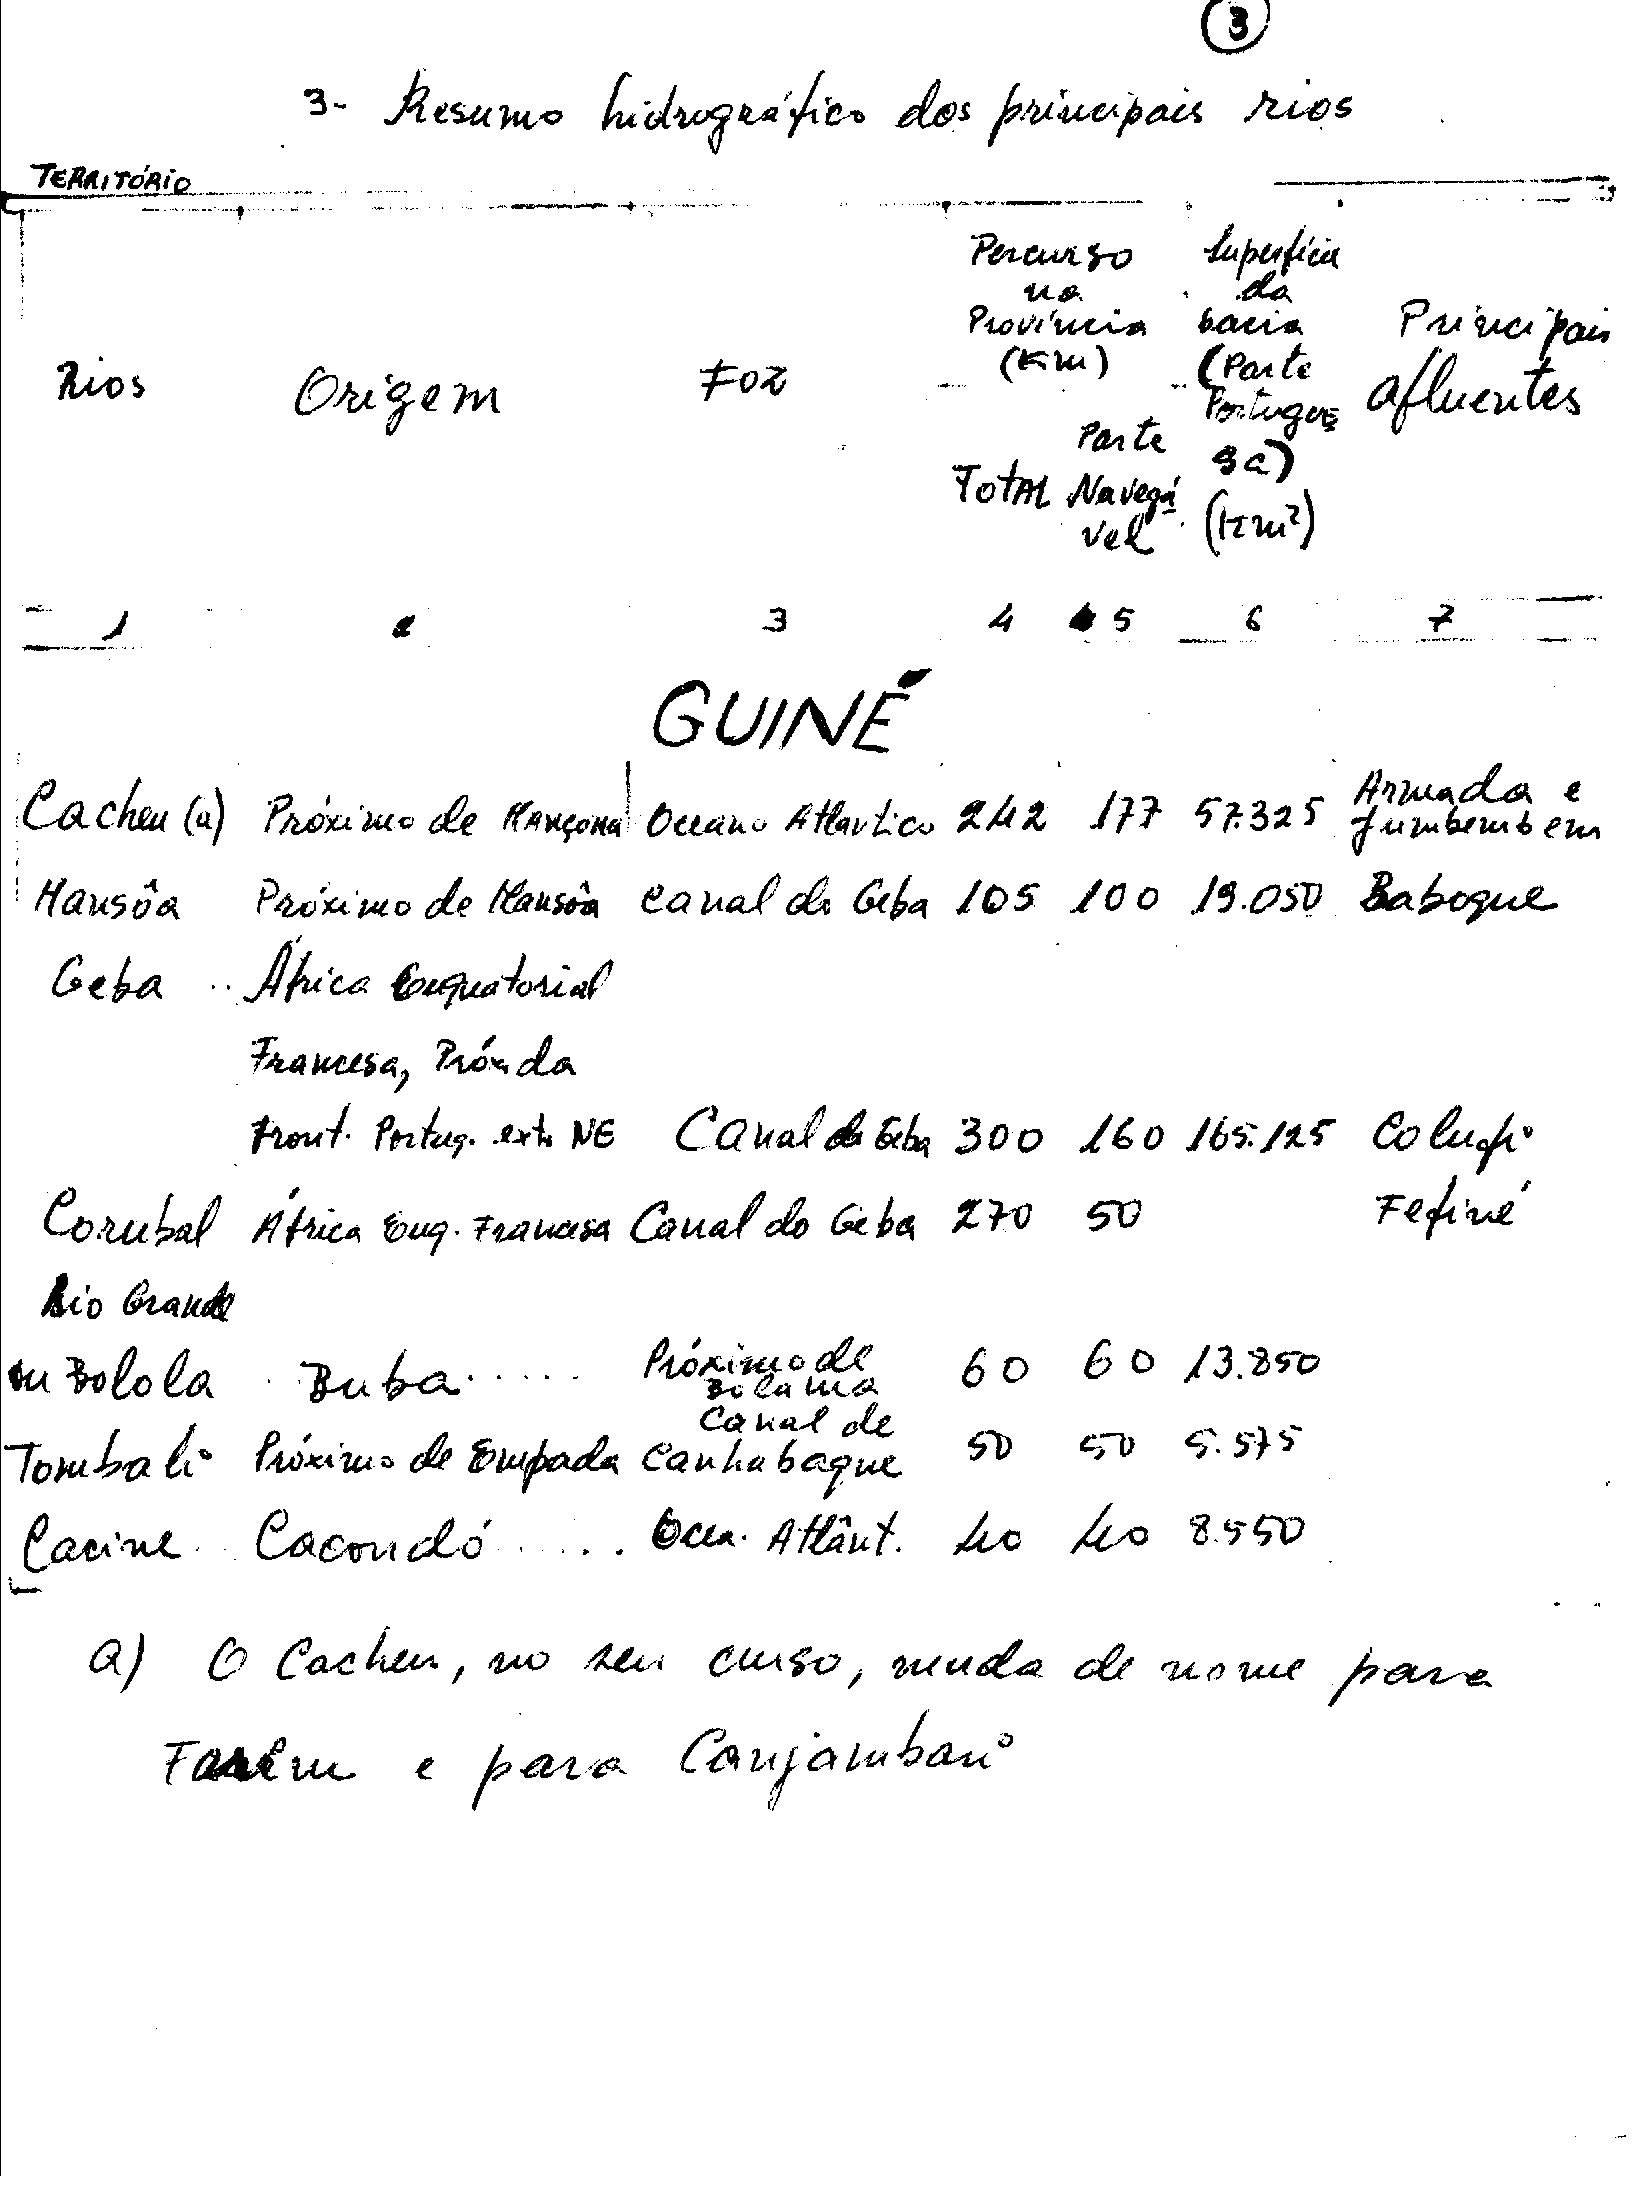 3
3- Resumo hidrográfico dos principais rios
TERRITÓRIO
Rios Origem Foz Percurso na Província (Km) Superfície da bacia (Parte Portuguesa) (Km²) Principais afluentes
TOTAL Parte Navegável
1 2 3 4 5 6 7
GUINÉ
Cacheu (a) Próximo de Mançona Oceano Atlantico 242 177 57.325 Armada e Jumbembem
Mansôa Próximo de Mansôa Canal do Geba 105 100 19.050 Baboque
Geba .. África Equatorial
Francesa, Próx da
Front. Portug. extr. NE Canal do Geba 300 160 165.125 Colufi
Corubal África Equ. Francesa Canal do Geba 270 50 Fefiné
Rio Grande
ou Bolola Buba ..... Próximo de Bolama 60 60 13.850
Tombali Próximo de Empada Canal de Canhabaque 50 50 5.575
Cacine Cacondó .... Ocea. Atlânt. 40 40 8.550
a) O Cacheu, no seu curso, muda de nome para
Farim e para Canjambari